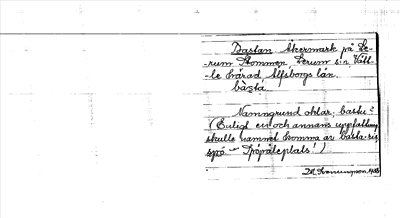 Bastan Åkermark på Le-
rum Kommen, Lerum s:n Vätt-
le härad, Älfsborgs län.
bàsta.
Namngrund oklar; bastu?
(Enligt en och annans uppfattning
skulle namnet komma av basta-
spö - Spöpåleplats!)
1938